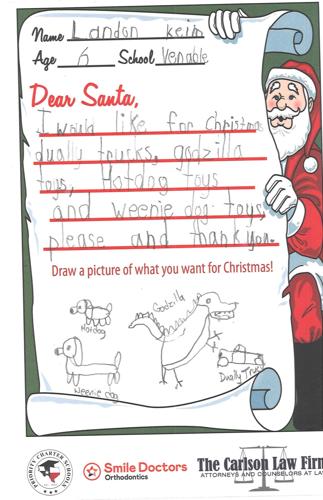 Name Landon Kein
Age 6 School Venable
Dear Santa,
I would like for Christmas
dually trucks, godzilla
toys, Hotdog toys
and weenie dog toys,
please and thank you.
Draw a picture of what you want for Christmas!
Hotdog
Godzilla
Weenie dog
Dually Truck
PRIORITY CHARTER SCHOOLS
Smile Doctors
Orthodontics
The Carlson Law Firm
ATTORNEYS AND COUNSELORS AT LAW